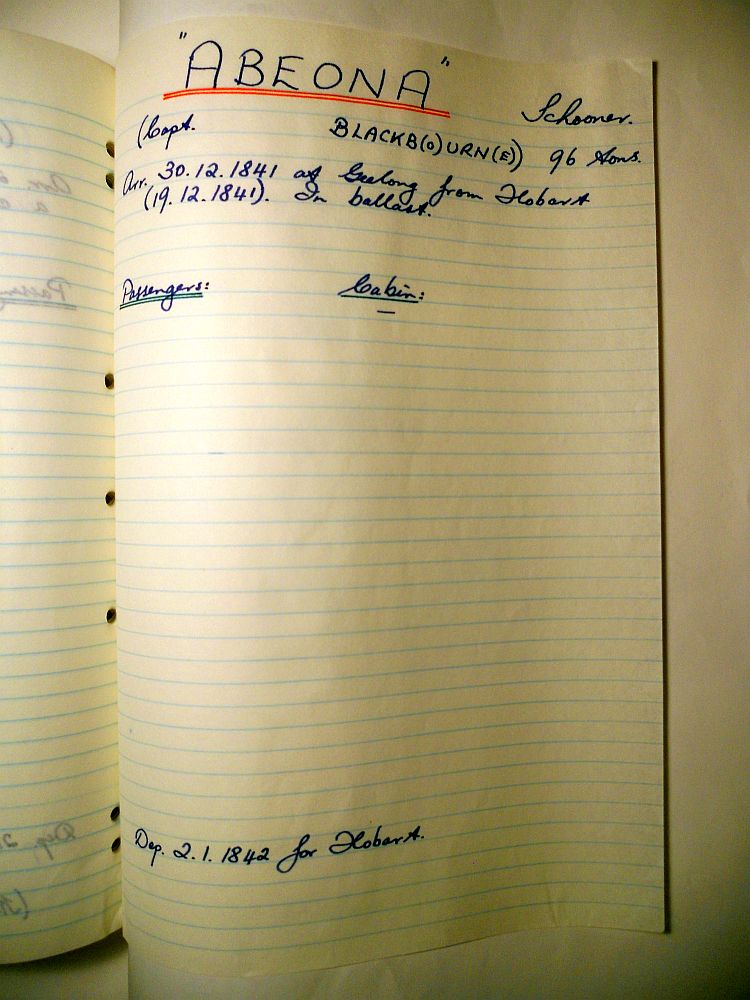 "ABEONA"
Schooner.
(Capt. BLACKB(O)URN(E)) 96 tons.
Arr. 30.12.1841 at Geelong from Hobart
(19.12.1841). In ballast.
Passengers: Cabin:
—
Dep. 2.1.1842 for Hobart.